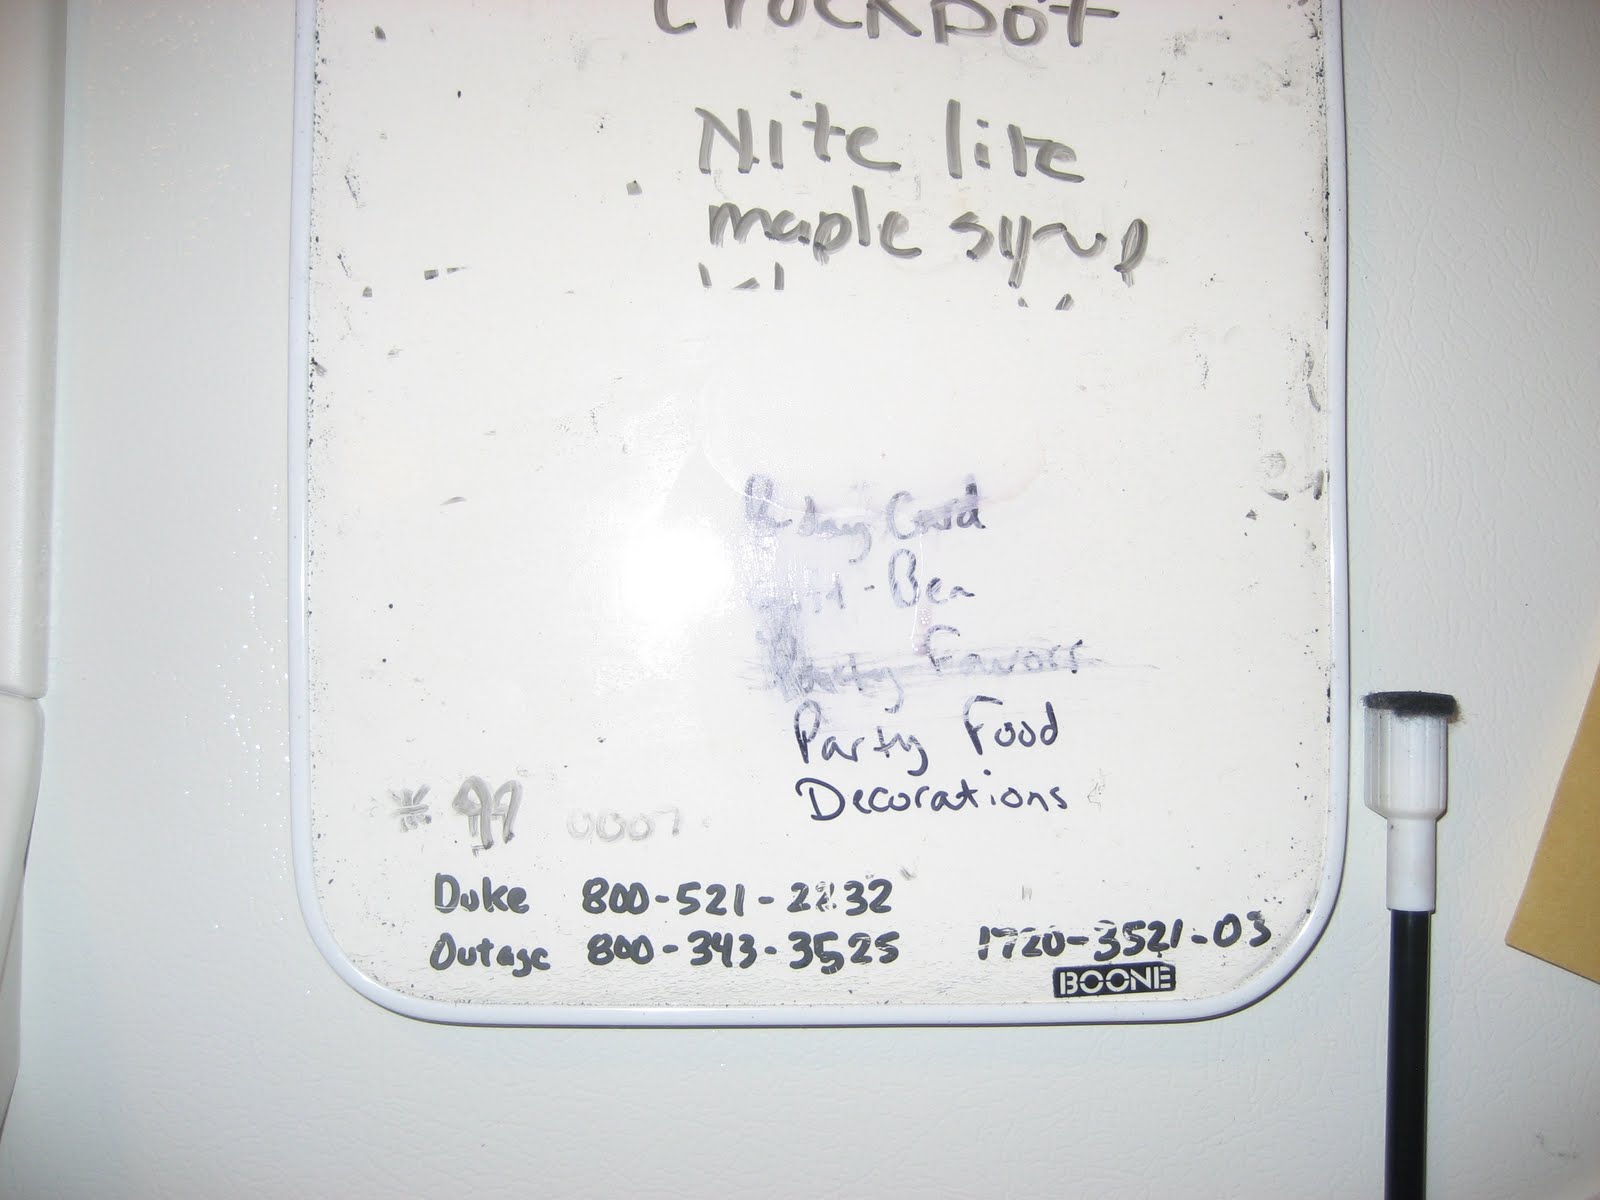 Crockpot
Nite lite
maple syrup
B-day Card
Gift - Ben
Party Favors
Party Food
Decorations
* 99 0007
Duke 800-521-2232
Outage 800-343-3525 1720-3521-03
BOONE